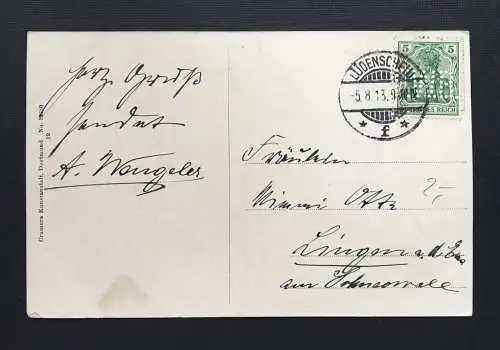 Herz. Gruß
sendet
A. Wengeler
Cramers Kunstanstalt, Dortmund. No.
12
LÜDENSCHEID
-5.8.13.9-
* f *
5 5
DEUTSCHES REICH
Fräulein
Mimmi Otte
2,-
Lingen a. d. Ems
am Schneewall